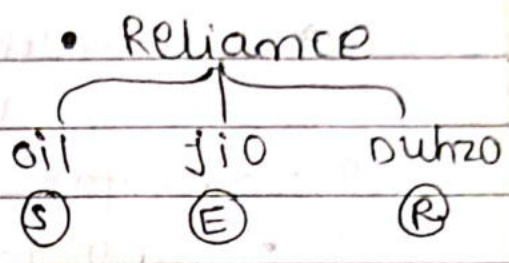 • Reliance
oil jio Duhzo
S E R